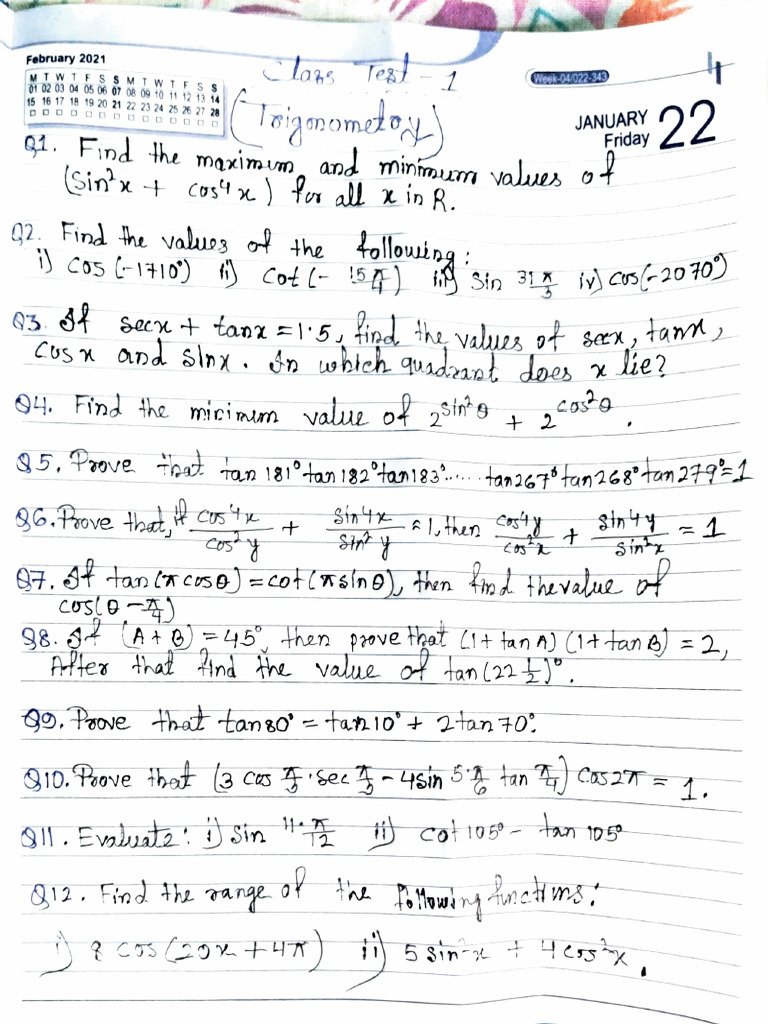 February 2021
M T W T F S S M T W T F S S
01 02 03 04 05 06 07 08 09 10 11 12 13 14
15 16 17 18 19 20 21 22 23 24 25 26 27 28
Class Test - 1
Week-04/022-343
(Trigonometry)
JANUARY
Friday 22
Q1. Find the maximum and minimum values of
(sin²x + cos⁴x) for all x in R.
Q2. Find the values of the following:
i) cos (-1710°) ii) cot (- 15 π/4) iii) sin 31 π/3 iv) cos(-2070°)
Q3. If secx + tanx = 1.5, find the values of secx, tanx,
cosx and sinx. In which quadrant does x lie?
Q4. Find the minimum value of 2^sin²θ + 2^cos²θ.
Q5. Prove that tan 181° tan 182° tan 183°...... tan 267° tan 268° tan 279° = 1
Q6. Prove that, if cos⁴x/cos²y + sin⁴x/sin²y = 1, then cos⁴y/cos²x + sin⁴y/sin²x = 1
Q7. If tan(π cosθ) = cot(π sinθ), then find the value of
cos(θ - π/4)
Q8. If (A + B) = 45°, then prove that (1 + tan A) (1 + tan B) = 2,
After that find the value of tan (22 1/2)°.
Q9. Prove that tan 80° = tan 10° + 2 tan 70°.
Q10. Prove that (3 cos π/3 . sec π/3 - 4 sin 5 π/6 tan π/4) cos 2π = 1.
Q11. Evaluate: i) sin 11.π/12 ii) cot 105° - tan 105°
Q12. Find the range of the following functions:
i) 8 cos (20x + 4π) ii) 5 sin²x + 4 cos²x.